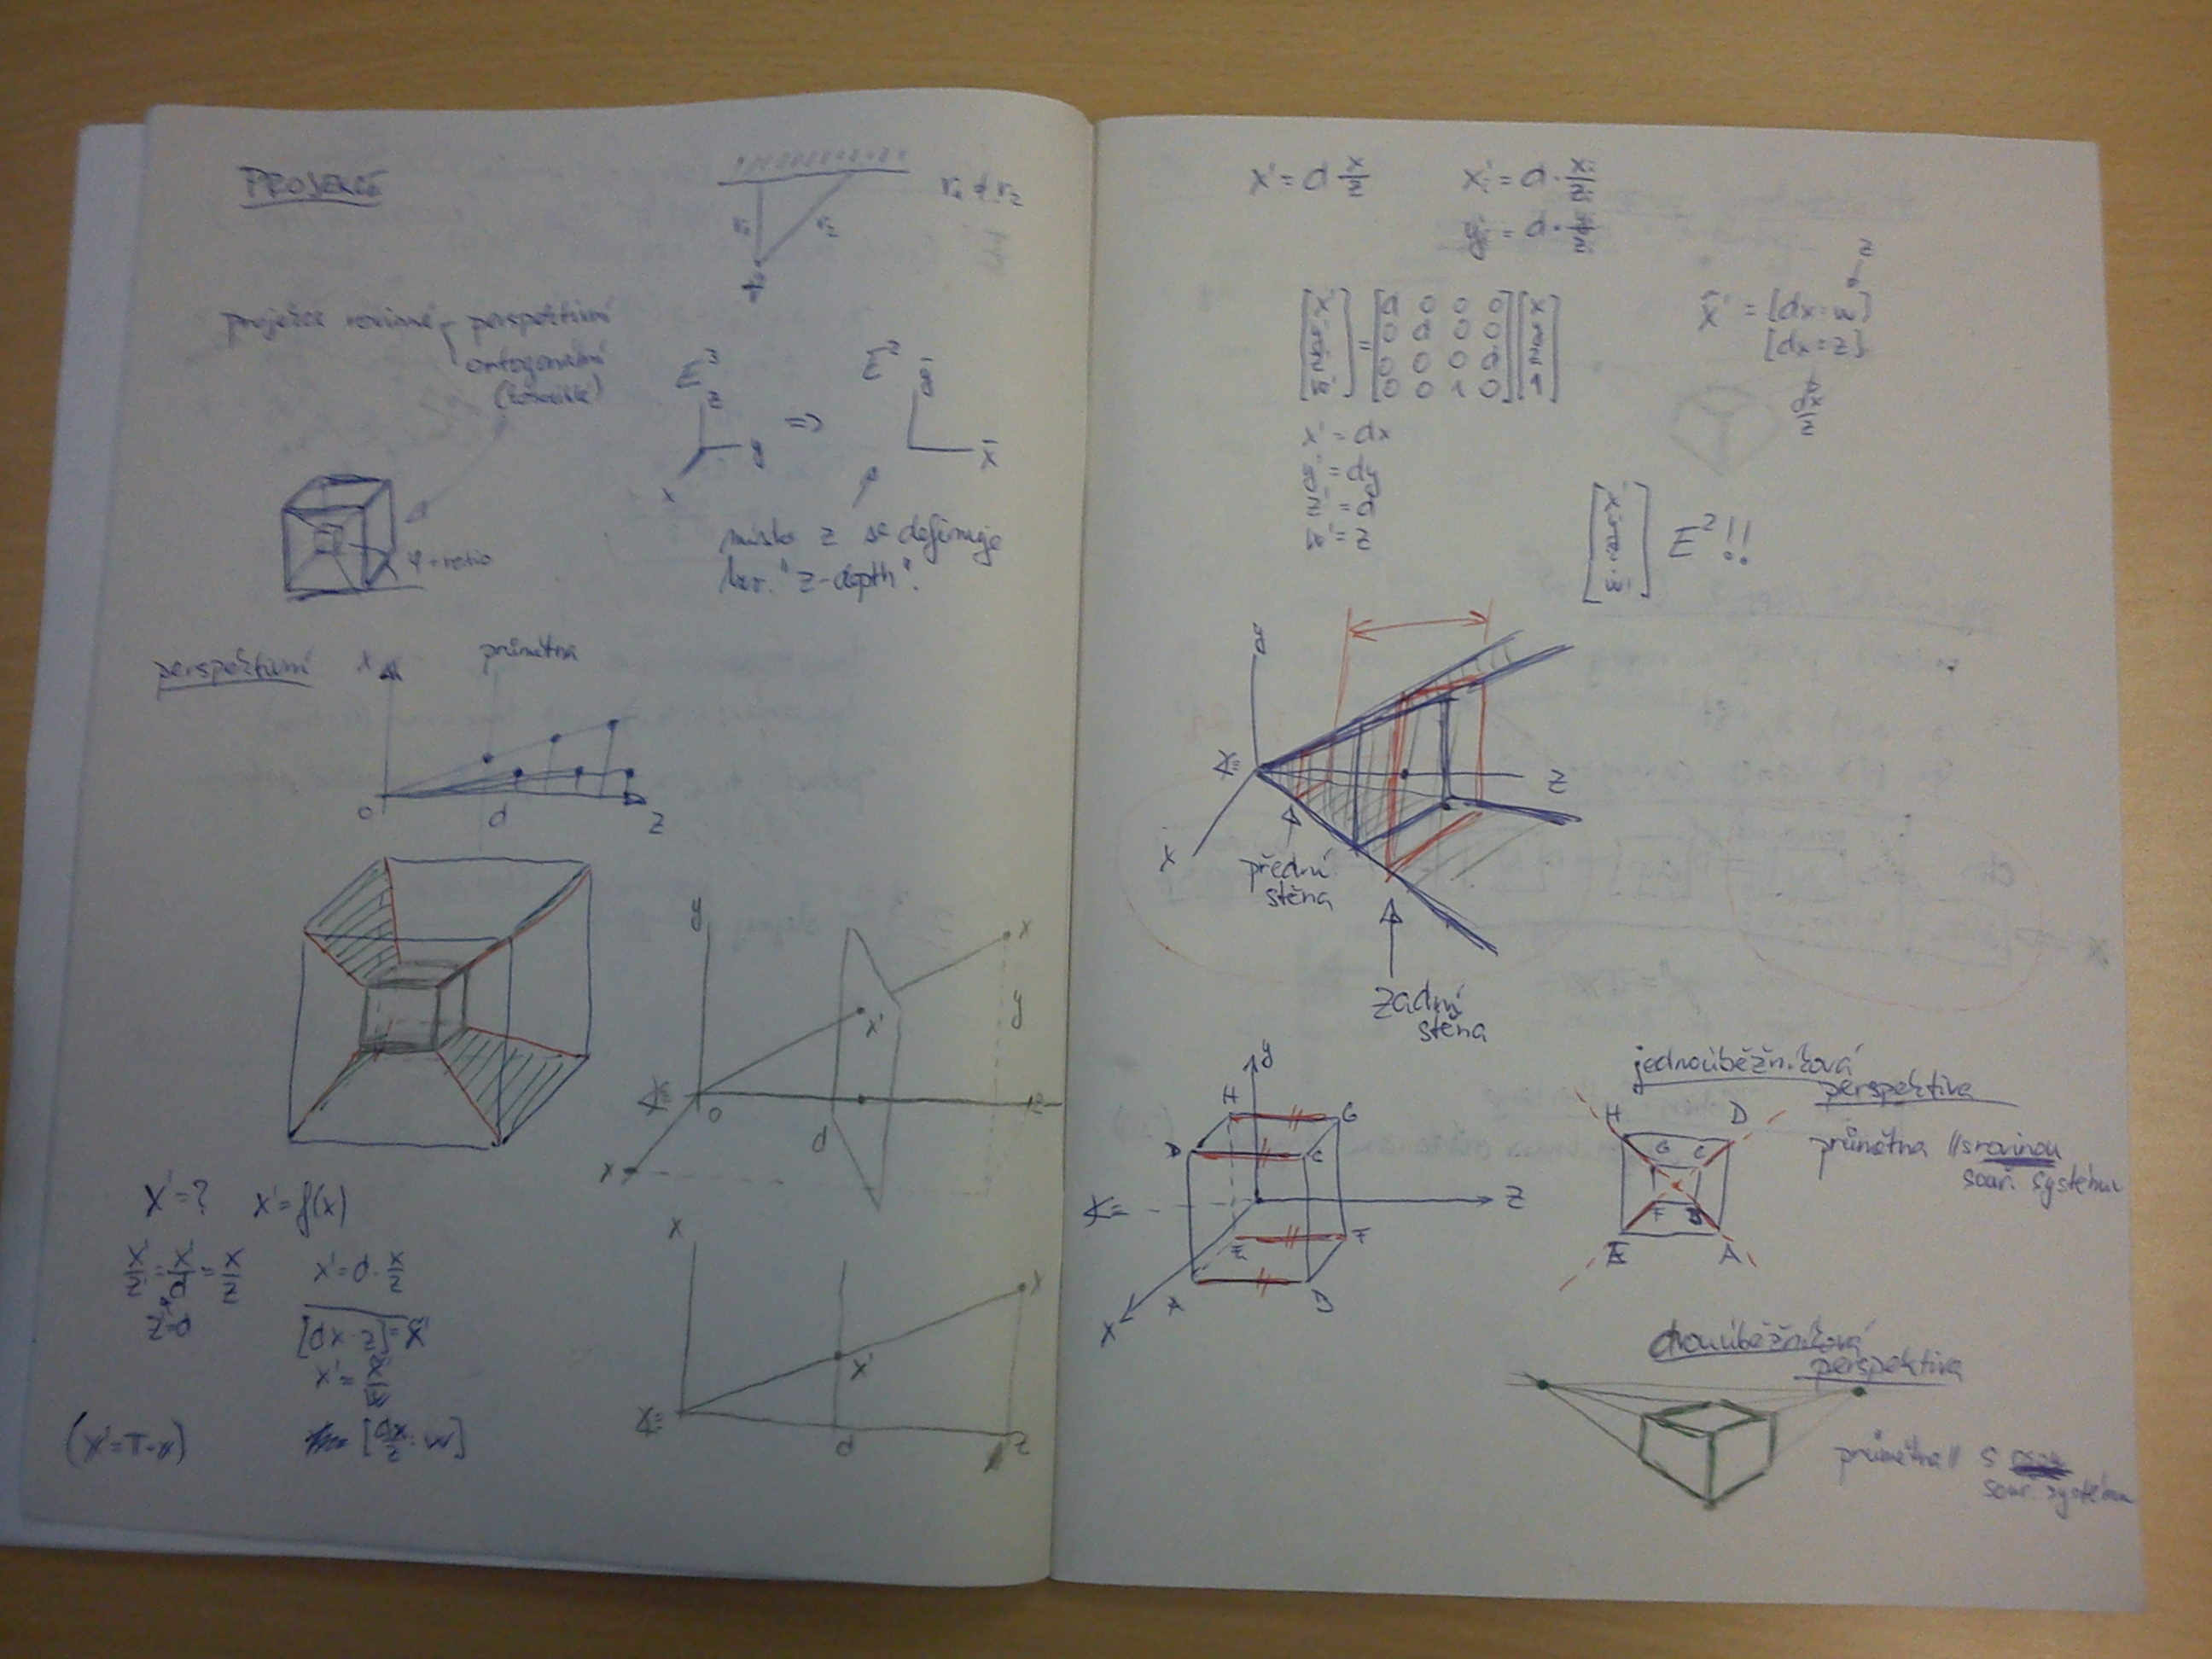 PROJEKCE
r₁ ≠ r₂
r₁
r₂
projekce rovinné
perspektivní
ortogonální
E³
z
y
x
⇒
E²
ȳ
x̄
φ-ratio
místo z se definuje
tzv. "z-depth".
perspektivní
x
průmětna
o
d
z
y
x
x'
y
o
d
x
z
x' = ?
x' = f(x)
x'/z' = x'/d = x/z
z' = d
x' = d · x/z
x
x
x'
d
z
x' = d x/z
xᵢ' = d · xᵢ/zᵢ
yᵢ' = d · yᵢ/zᵢ
[x' y' z' w'] = [d 0 0 0
0 d 0 0
0 0 0 d
0 0 1 0] [x y z 1]
z
[dx : w]
[dx : z]
dx/z
x' = dx
y' = dy
z' = d
w' = z
E²!!
y
x
z
přední
stěna
zadní
stěna
y
H
G
D
C
Z
E
F
A
B
X
jednoúběžníková
perspektiva
průmětna // s rovinou
souř. systému
H
D
G
C
F
B
E
A
dvouúběžníková
perspektiva
průmětna // s osou
souř. systému